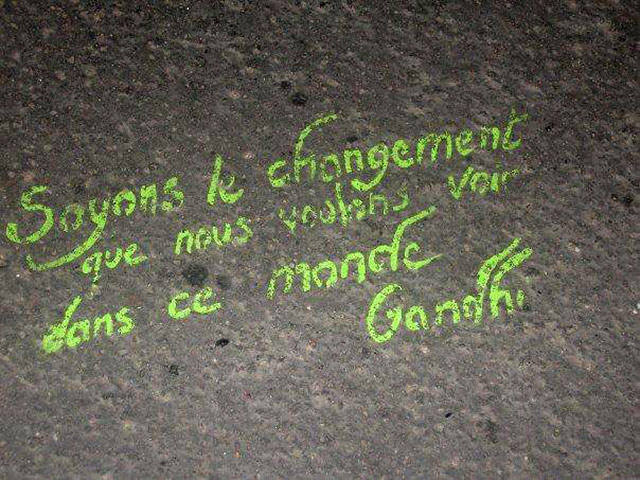 Soyons le changement
que nous voulons voir
dans ce monde
Gandhi